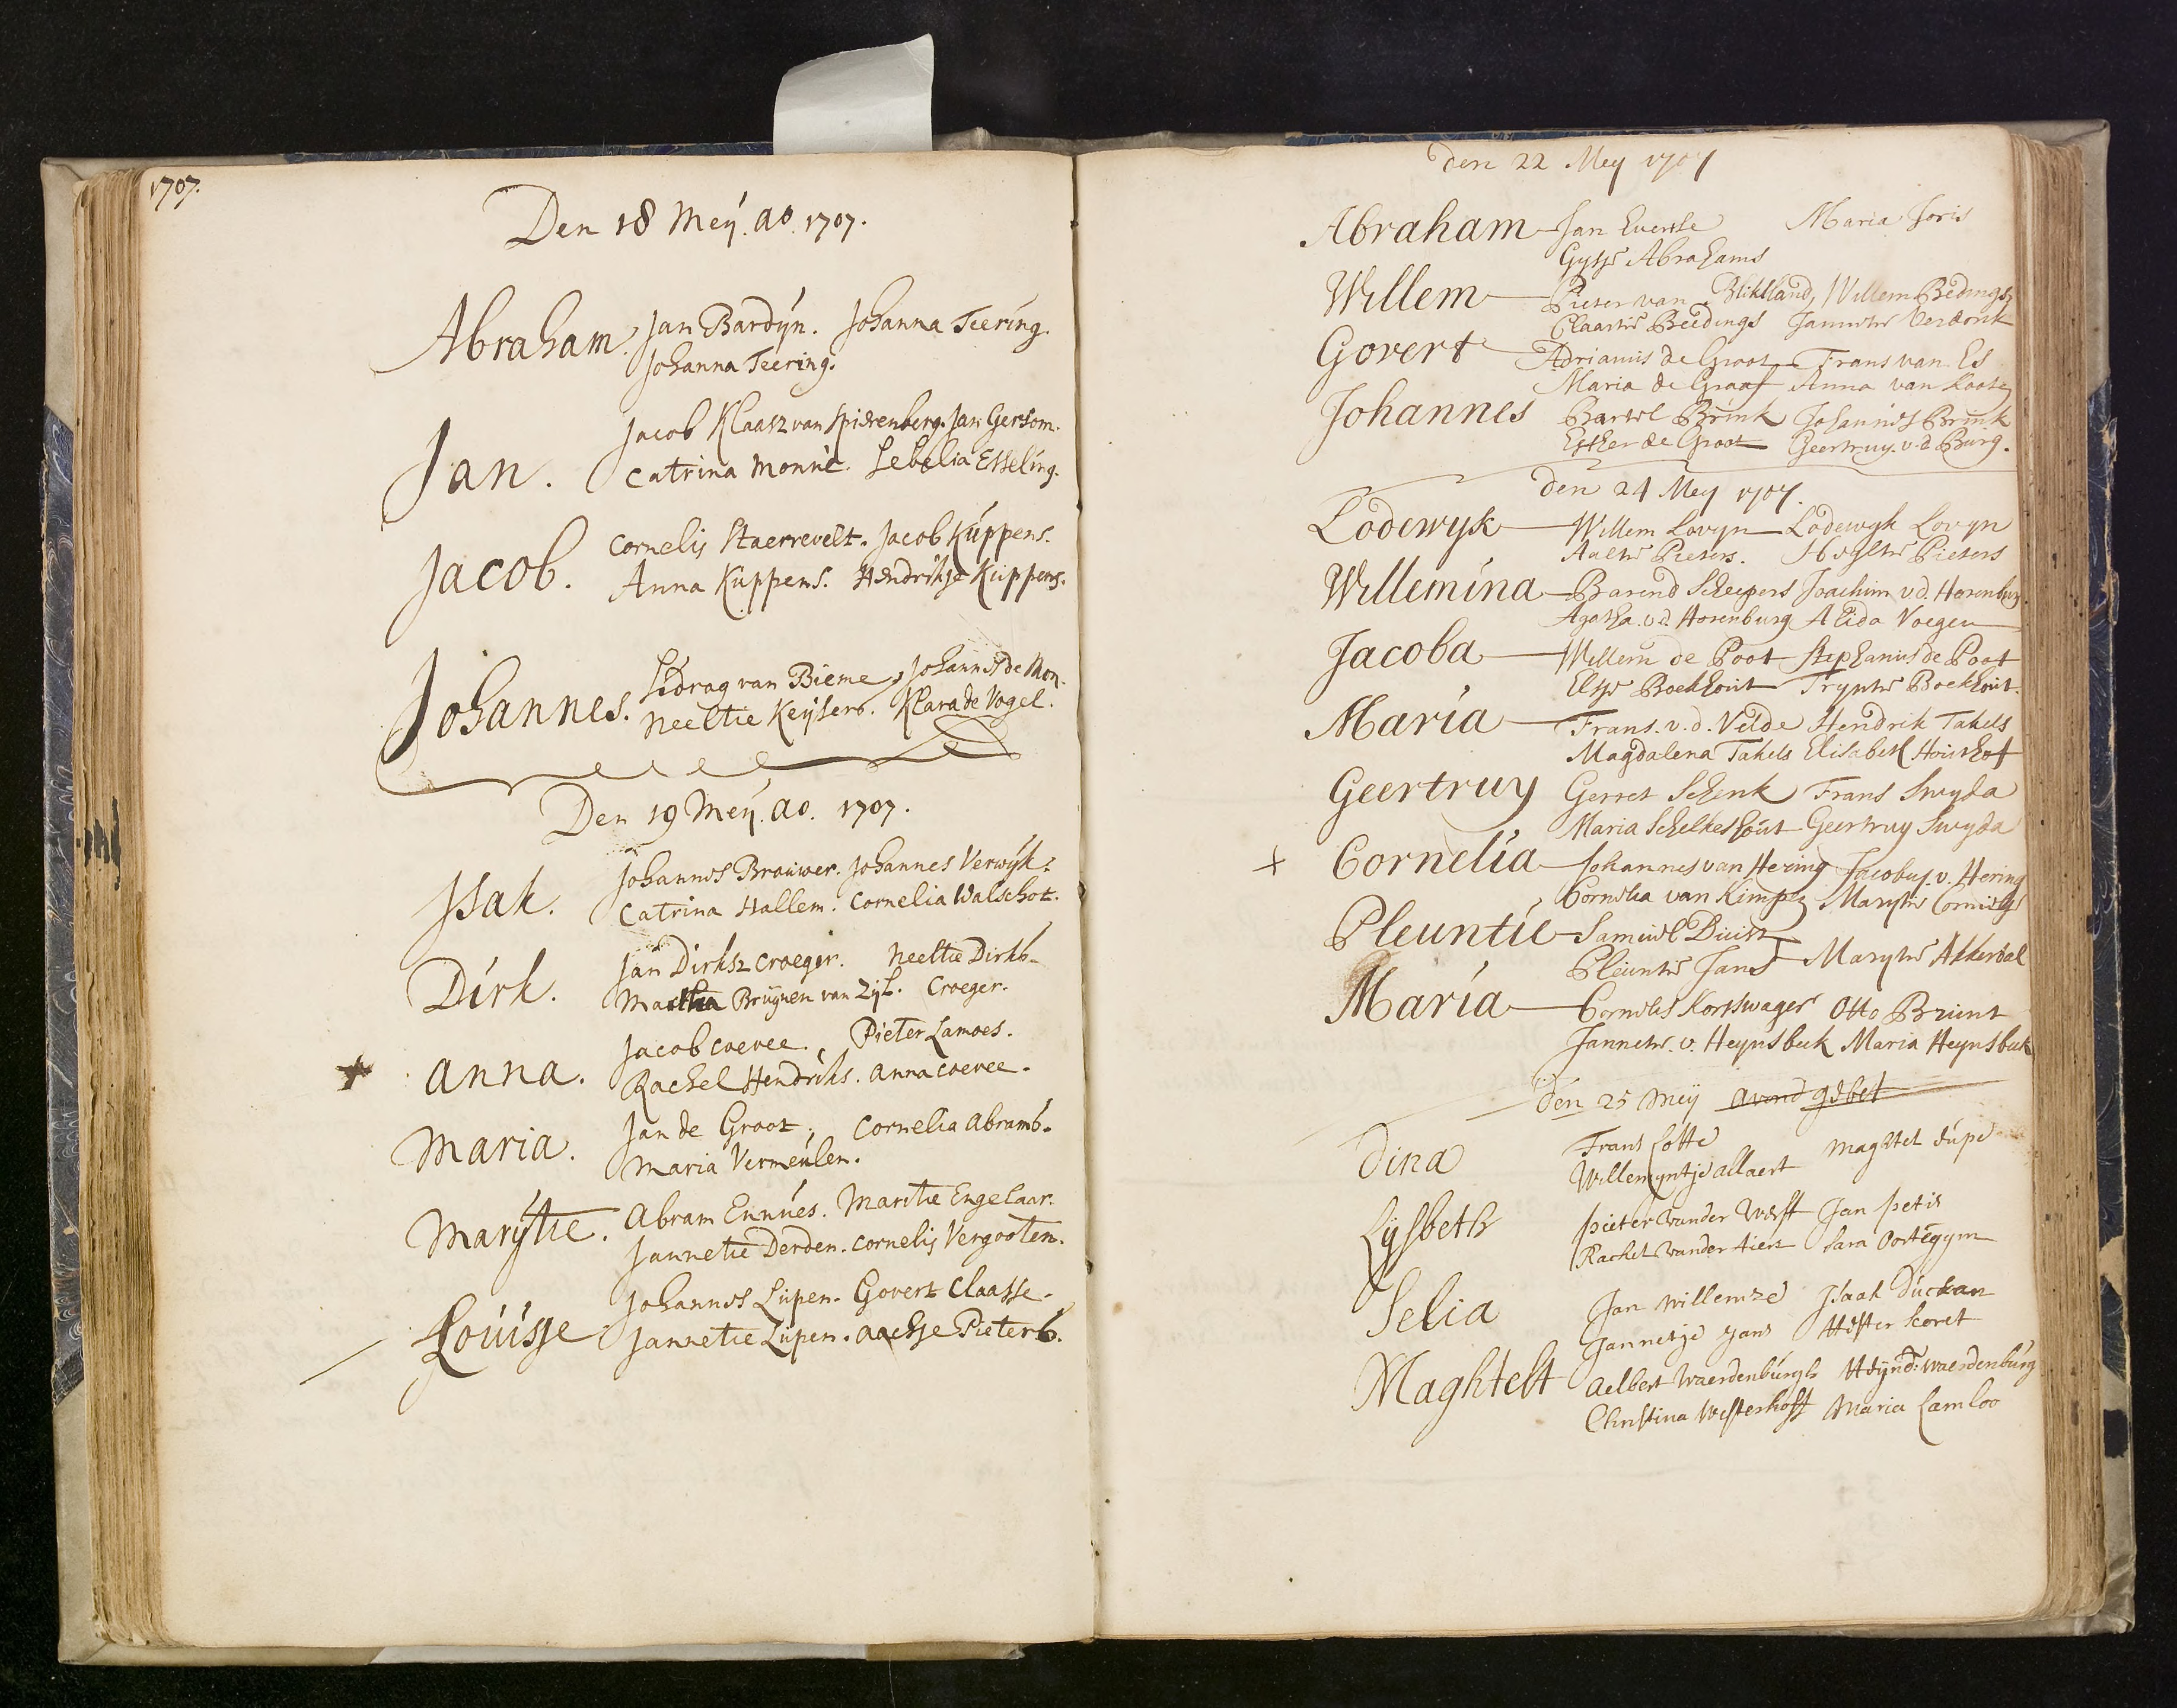 1707.
Den 18 Meÿ. ao. 1707.
Abraham. Jan Bardÿn. Johanna Teering.
Johanna Teering.
Jan. Jacob Klaasz van Spierenberg. Jan Gersom.
Catrina Monnie. Sebelia Esseling.
Jacob. Cornelis Staerrevelt. Jacob Kuppens.
Anna Kuppens. Hendrikje Kuppens.
Johannes. Sidrag van Bieme, Johannes de Mon.
Neeltie Keÿsers. Klara de Vogel.
Den 19 Meÿ. ao. 1707.
Isak. Johannes Brouwer. Johannes Verwÿk.
Catrina Hallem. Cornelia Walschot.
Dirk. Jan Dirksz Croeger. Neeltie Dirks
Martha Bruÿnen van Zÿl. Croeger.
Anna. Jacob Coevee. Pieter Lamoes.
Rachel Hendriks. Anna Coevee.
Maria. Jan de Groot, Cornelia Abrams.
Maria Vermeulen.
Marÿtie. Abram Ennues. Maritie Engelaar.
Jannetie Derden. Cornelis Vergooten.
Louisje Johannes Lupen. Govert Claasse.
Jannetie Lupen. Aechje Pieters.
den 22 Mey 1707
Abraham Jan Evertse Maria Joris
Gysje Abrahams
Willem Pieter van Blikland, Willem Bedings,
Claartie Beedings Jannetie Verdonk
Govert Adrianus de Groot Frans van Es
Maria de Graaf Anna van
Johannes Bartel Brink Johannes Brink
Esther de Groot Geertruy v. d. Burg.
den 24 Mey 1707.
Lodewyk Willem Lovyn Lodewyk Lovyn
Aaltie Pieters. Pieters
Willemina Barend Scheepers Joachim v.d. Horenburg
Agatha v.d Horenburg Alida Voegen
Jacoba Willem de Poot Stephanus de Poot
Elsje Boekhout Tryntie Boekhout.
Maria Frans. v. d. Velde Hendrik Takels
Magdalena Takels Elisabeth Houthof
Geertruy Gerret Schenk Frans Swyda
Maria Schelkeshout Geertruy Swyda
Cornelia Johannes van Hering Jacobus. v. Hering
Cornelia van Kimpe Marytie Cornelis
Pleuntie Samuel Duist
Pleuntie Jans Marytie Akkerdal
Maria Cornelis Korswager Otto Bruint
Jannetie. v. Heynsbeek Maria Heynsbeek
den 25 Meÿ avond gebet
Dina Frans Cotte
Willemyntje Allaert Maghtel dupe
Lysbeth Pieter vander Werff Jan Petis
Rachel vander Sara Oortegym
Selia Jan Willemze Isaak Duckan
Jannetje Jans Hester Coret
Maghtelt Aelbert Waerdenburgh Heÿnd: Waerdenburg
Christina Westerhoff Maria Lamloo